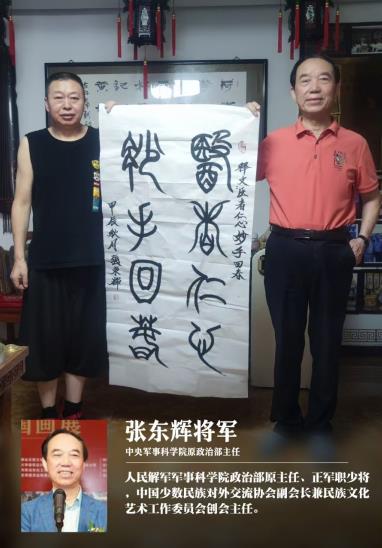 醫者仁心
妙手回春
释文医者仁心妙手回春
甲辰秋月张東辉
国画展
张东辉将军
中央军事科学院原政治部主任
人民解军军事科学院政治部原主任、正军职少将
，中国少数民族对外交流协会副会长兼民族文化
艺术工作委员会创会主任。